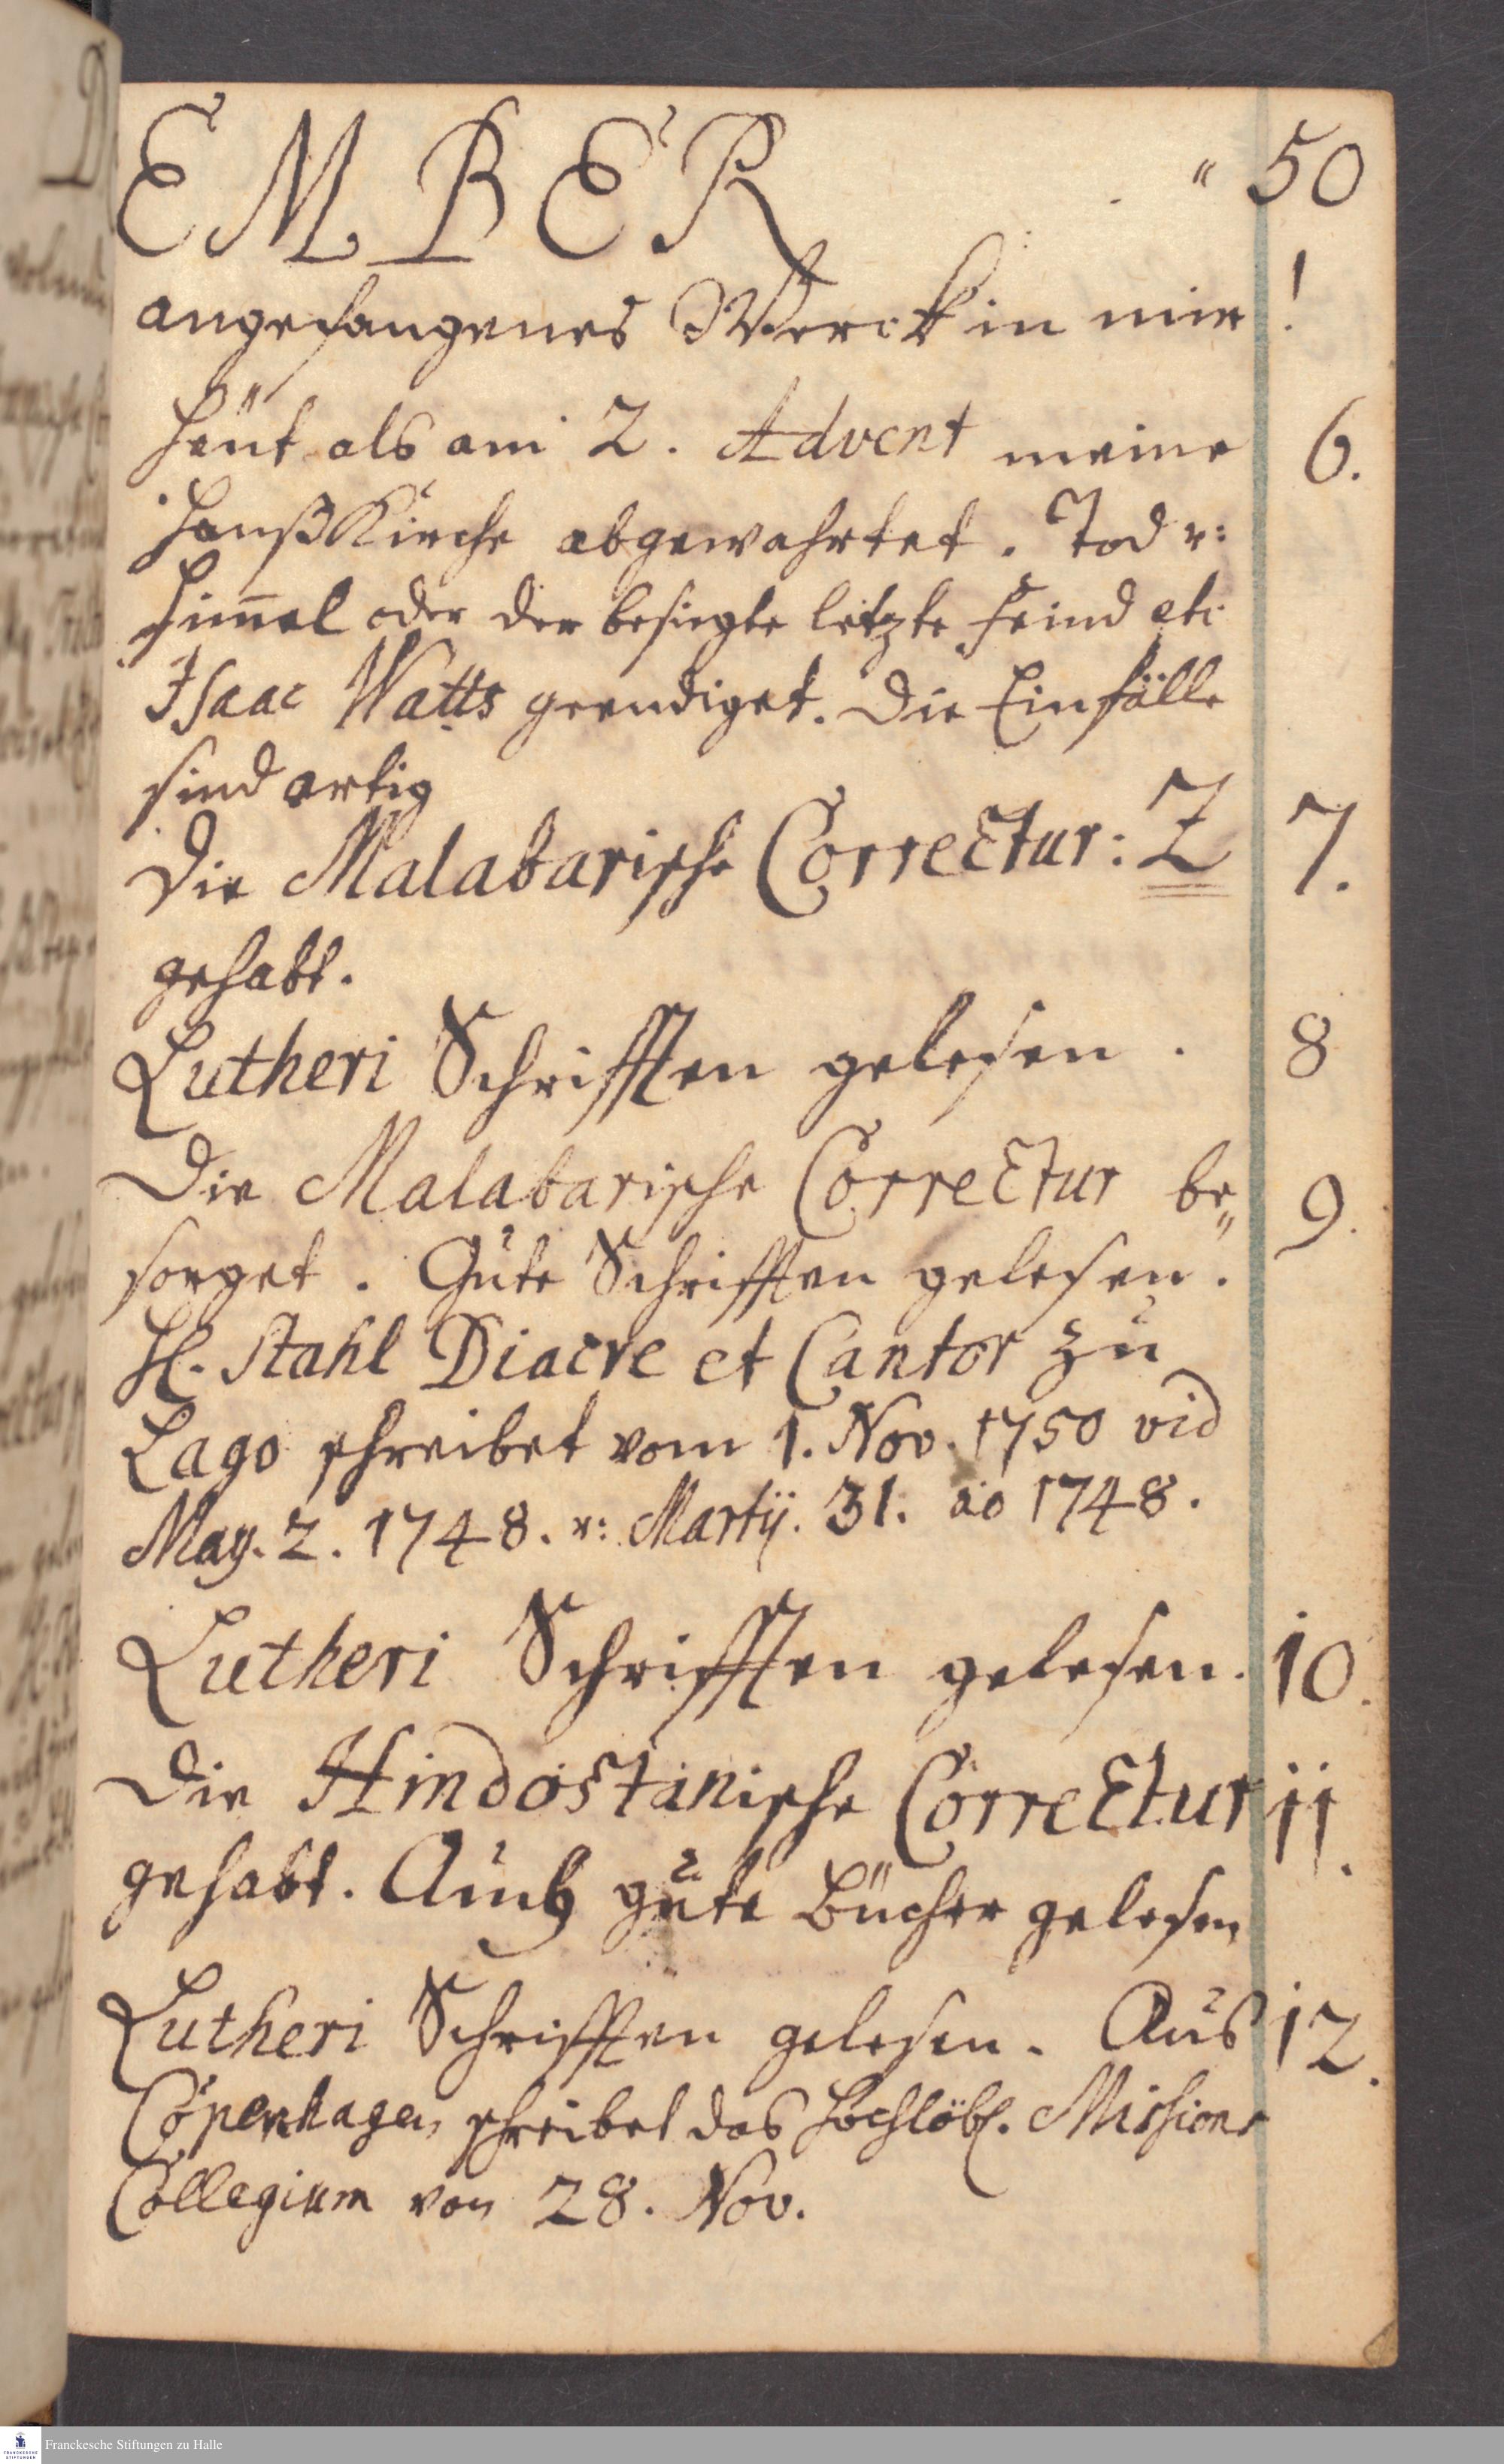 EMBER " 50
angefangenes Werck in mir !
Heüt als am 2. Advent meine 6.
HaußKirche abgewahrtet. Tod u:
Him̄el oder der besiegte letzte Feind etc
Isaac Watts geendiget. Die Einfälle
sind artig
Die Malabarische Correctur: Z 7.
gehabt.
Lutheri Schrifften gelesen. 8
Die Malabarische Correctur be„ 9.
sorget. Gute Schrifften gelesen.
H. Stahl Diacre et Cantor zu
Lago schreibet vom 1. Nov. 1750 vid
May. 2. 1748. u: Martij. 31. ao 1748.
Lutheri Schrifften gelesen. 10.
Die Hindostanische Correctur 11.
gehabt. Auch gute Bücher gelesen
Lutheri Schrifften gelesen. Aus 12.
Copenhagen schreibet das Hochlöbl. Missions
Collegium von 28. Nov.
Franckesche Stiftungen zu Halle